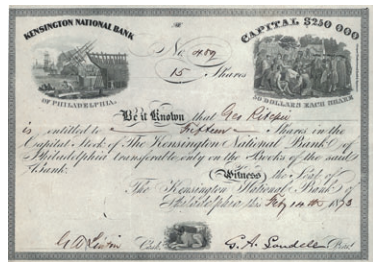 KENSINGTON NATIONAL BANK
OF PHILADELPHIA.
No 489
15 Shares
CAPITAL $250 000
50 DOLLARS EACH SHARE
Be it Known that Geo
is entitled to Fifteen Shares in the
Capital Stock of The Kensington National Bank of
Philadelphia transferable only on the Books of the said
Bank.
Witness the Seal of
The Kensington National Bank of
Philadelphia this Feby 14th 1873
Cash. G. A. Landell Prest